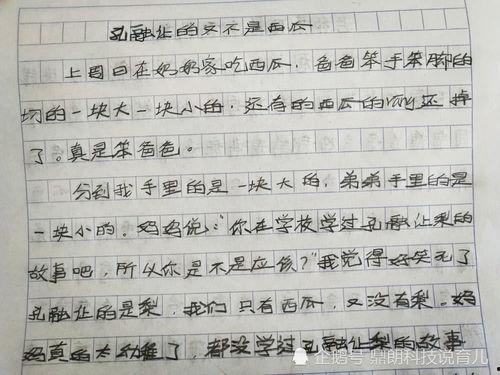 孔融让的又不是西瓜
上周日在奶奶家吃西瓜，爸爸笨手笨脚的
切的一块大一块小的，还有的西瓜的 还掉
了。真是笨爸爸。
分到我手里的是一块大的，弟弟手里的是
一块小的。妈妈说："你在学校学过孔融让梨的
故事吧，所以你是不是应该？"我觉得好笑死了
孔融让的是梨，我们只有西瓜，又没有梨。妈
妈真的太幼稚了，都没学过孔融让梨的故事
企鹅号 鼎朗科技说育儿